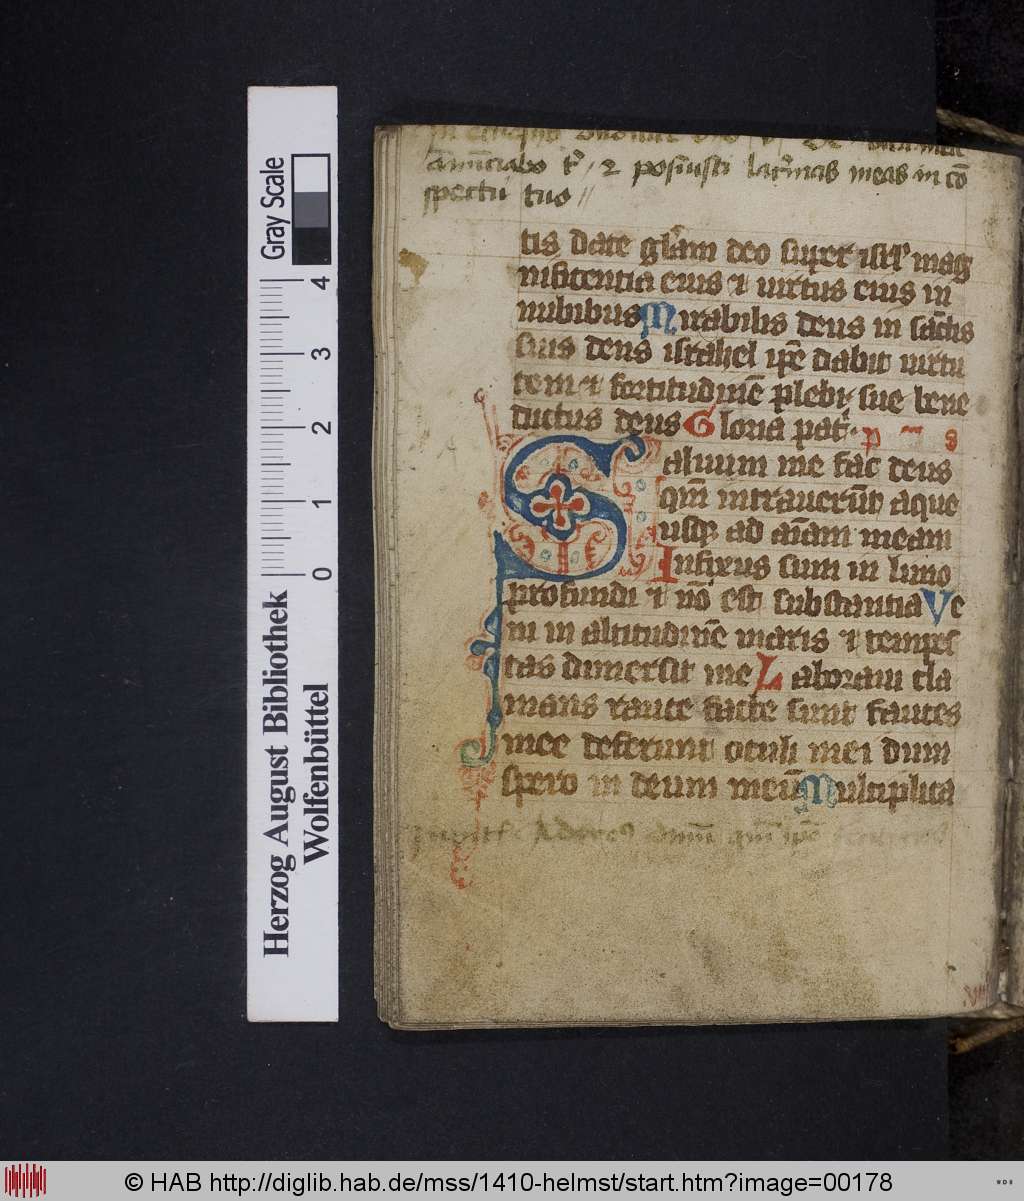 annunciabo t' / 2 posuisti lac'mas meas in co
spectu tuo //
tis date gl'am deo super isr'l mag
nificentia eius et uirtus eius in
nubibus Mirabilis deus in sanctis
suis deus israhel ip̄e dabit uirtu
tem et fortitudinē plebi sue bene
dictus deus Gloria pat'. p s
Saluum me fac deus
qm̄ intrauerūt aque
usq ad aīam meam
Infixus sum in limo
profundi et nō est substantia Ve
ni in altitudinē maris et tempes
tas dimersit me Laboraui cla
mans rauce facte sunt fauces
mee defecerunt oculi mei dum
spero in deum meū Multiplica
Herzog August Bibliothek
Wolfenbüttel
Gray Scale
0 1 2 3 4
© HAB http://diglib.hab.de/mss/1410-helmst/start.htm?image=00178